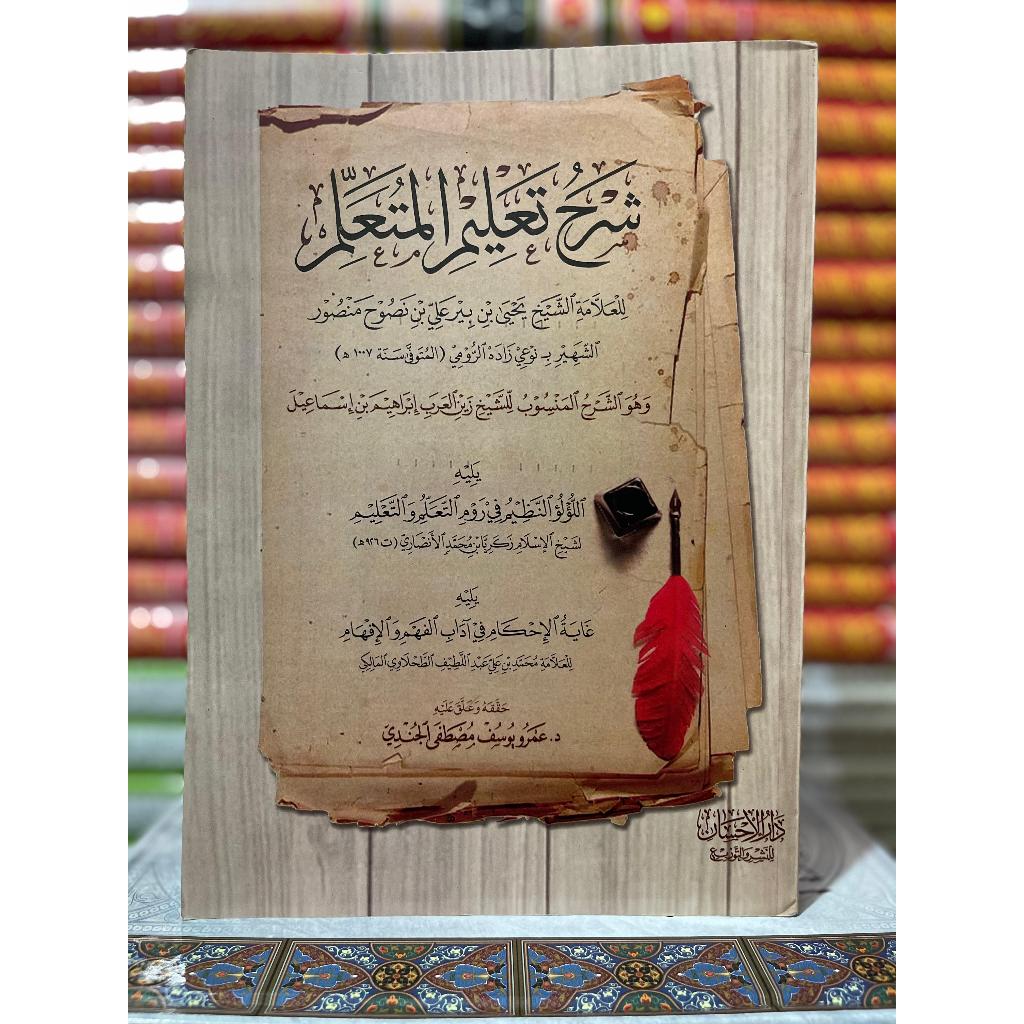 شَرْحُ تَعْلِيْمِ الْمُتَعَلِّمِ
لِلْعَلَّامَةِ الشَّيْخِ يَحْيَى بْنِ بِيْر عَلِيِّ بْنِ نَصُوْح مَنْصُوْر
الشَّهِيْرِ بـ نَوْعِيْ زَادَهْ الرُّوْمِيْ (المُتَوَفَّى سَنَة ١٠٠٧ هـ)
وَهُوَ الشَّرْحُ المَنْسُوْبُ لِلشَّيْخِ زَيْنِ العَرَبِ إِبْرَاهِيْمَ بْنِ إِسْمَاعِيْلَ
يَلِيْهِ
اللُّؤْلُؤُ النَّظِيْمُ فِيْ رَوْمِ التَّعَلُّمِ وَالتَّعْلِيْمِ
لشَيْخِ الإِسْلَامِ زَكَرِيَّا بْنِ مُحَمَّدٍ الأَنْصَارِيِّ (ت ٩٢٦هـ)
يَلِيْهِ
غَايَةُ الإِحْكَامِ فِيْ آدَابِ الفَهْمِ وَالإِفْهَامِ
لِلعَلَّامَةِ مُحَمَّدِ بْنِ عَلِيّ عَبْدِ اللَّطِيْفِ الطَّحْلَاوِيّ المَالِكِيّ
حَقَّقَهُ وَعَلَّقَ عَلَيْهِ
د. عَمْرُو يُوسُفْ مُصْطَفَى الجُنْدِيّ
دَارُ الْإِحْسَانِ
لِلنَّشْرِ وَالتَّوْزِيْعِ